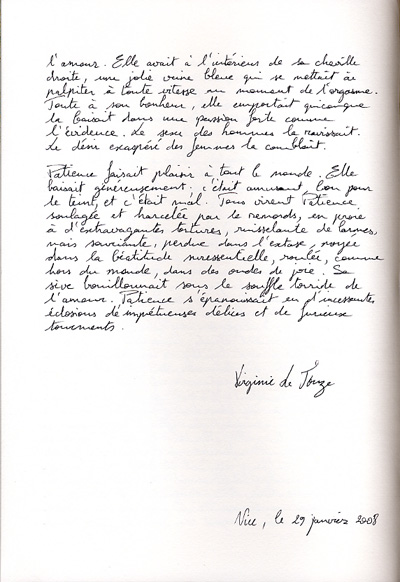 l'amour. Elle avait à l'intérieur de sa cheville
droite, une jolie veine bleue qui se mettait à
palpiter à toute vitesse au moment de l'orgasme.
Toute à son bonheur, elle emportait quiconque
la baisait dans une passion forte comme
l'évidence. Le sexe des hommes la ravissait.
Le désir exaspéré des femmes la comblait.
Patience faisait plaisir à tout le monde. Elle
baisait généreusement, c'était amusant, bon pour
le teint, et c'était mal. Tous virent Patience
soulagée et harcelée par le remords, en proie
à d'extravagantes tortures, ruisselante de larmes,
mais souriante, perdue dans l'extase, noyée
dans la béatitude suressentielle, roulée, comme
hors du monde, dans des ondes de joie. Sa
sève bouillonnait sous le souffle torride de
l'amour. Patience s'épanouissait en d'incessantes
éclosions d'impétueuses délices et de furieux
tourments.
Virginie de
Nice, le 29 janvier 2008